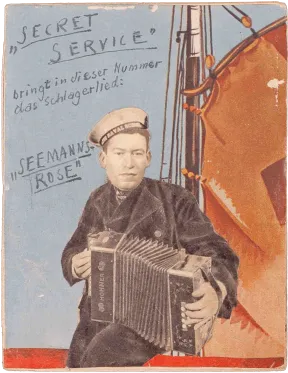 „SECRET
SERVICE"
bringt in dieser Nummer
das Schlagerlied:
„SEEMANNS-
ROSE"
HOHNER